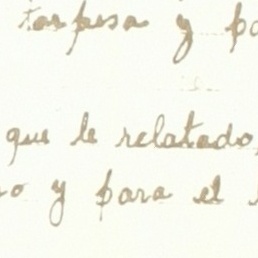 torpesa y pa
que le relatado,
o y para el